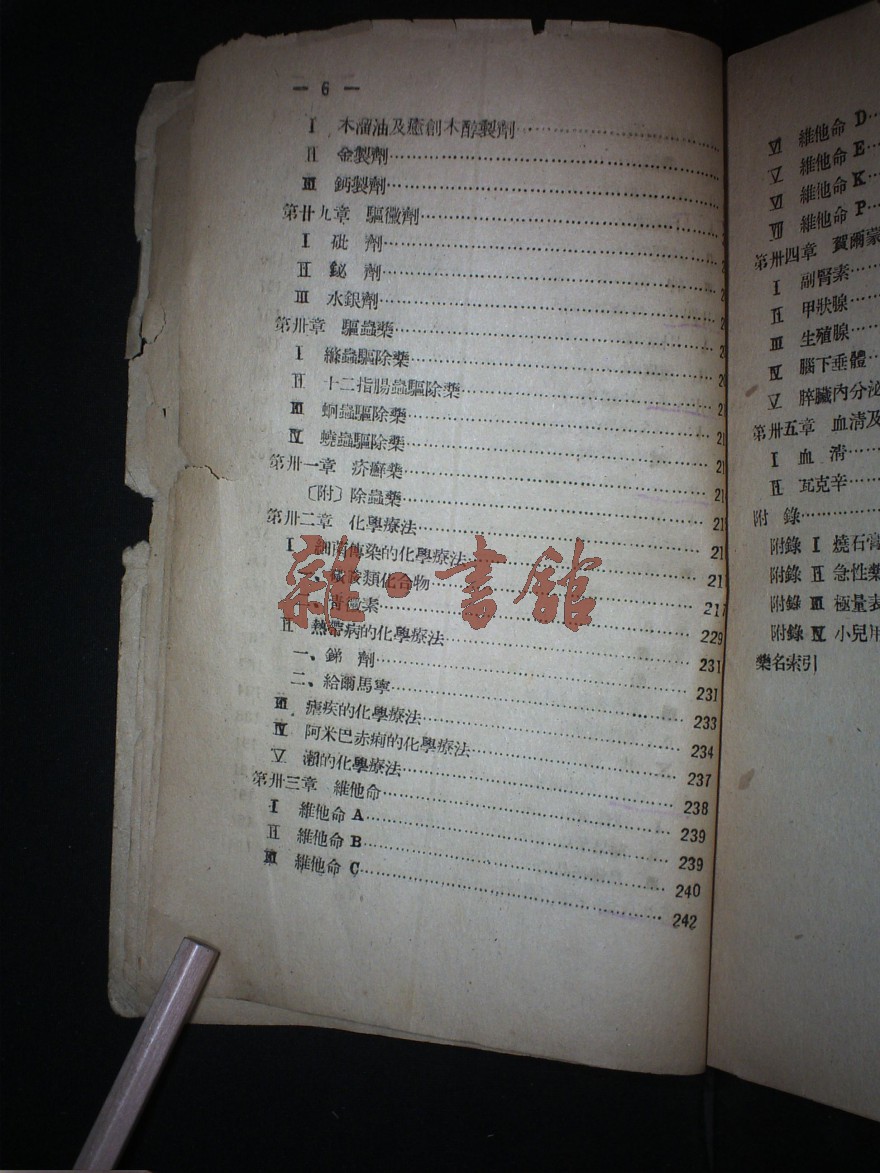 — 6 —
I 木溜油及癒創木醇製劑
II 金製劑
III 鈣製劑
第廿九章 驅黴劑
I 砒 劑
II 鉍 劑
III 水銀劑
第卅章 驅蟲藥
I 縧蟲驅除藥
II 十二指腸蟲驅除藥
III 蛔蟲驅除藥
IV 蟯蟲驅除藥
第卅一章 疥癬藥
〔附〕除蟲藥
第卅二章 化學療法
I 細菌傳染的化學療法
一、磺醯類化合物 217
二、青黴素 229
II 熱帶病的化學療法 231
一、銻 劑 231
二、給爾馬寧 233
III 瘧疾的化學療法 234
IV 阿米巴赤痢的化學療法 237
V 瀨的化學療法 238
第卅三章 維他命 239
I 維他命 A 239
II 維他命 B 240
III 維他命 C 242
雜·書館
VI 維他命 D
V 維他命 E
VI 維他命 K
VII 維他命 P
第卅四章 賀爾蒙
I 副腎素
II 甲狀腺
III 生殖腺
IV 腦下垂體
V 膵臟內分泌
第卅五章 血清及
I 血 清
II 瓦克辛
附 錄
附錄 I 燒石膏
附錄 II 急性藥
附錄 III 極量表
附錄 IV 小兒用
藥名索引